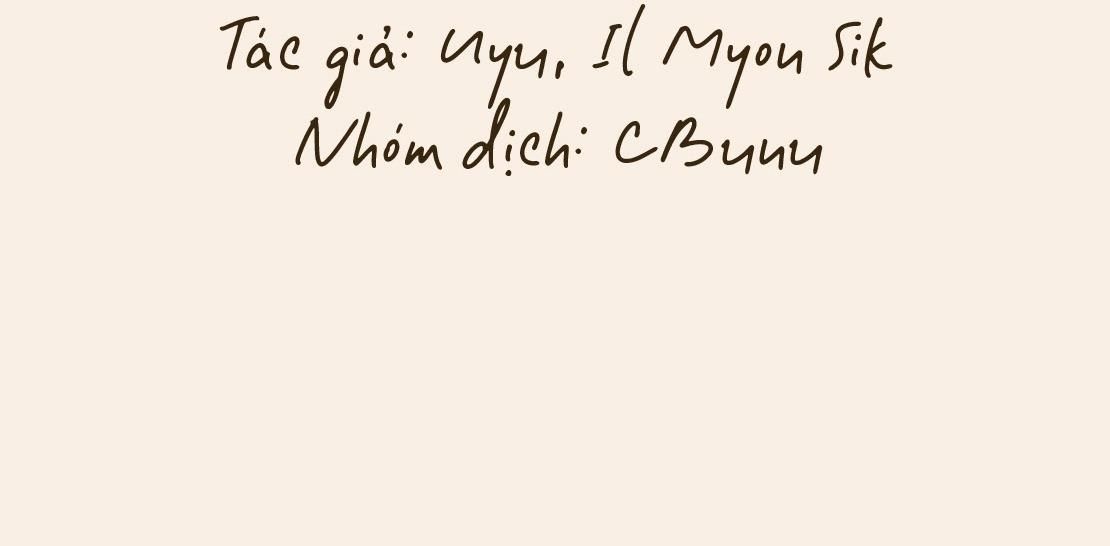 Tác giả: Uyu, Il Myon Sik
Nhóm dịch: CBunu